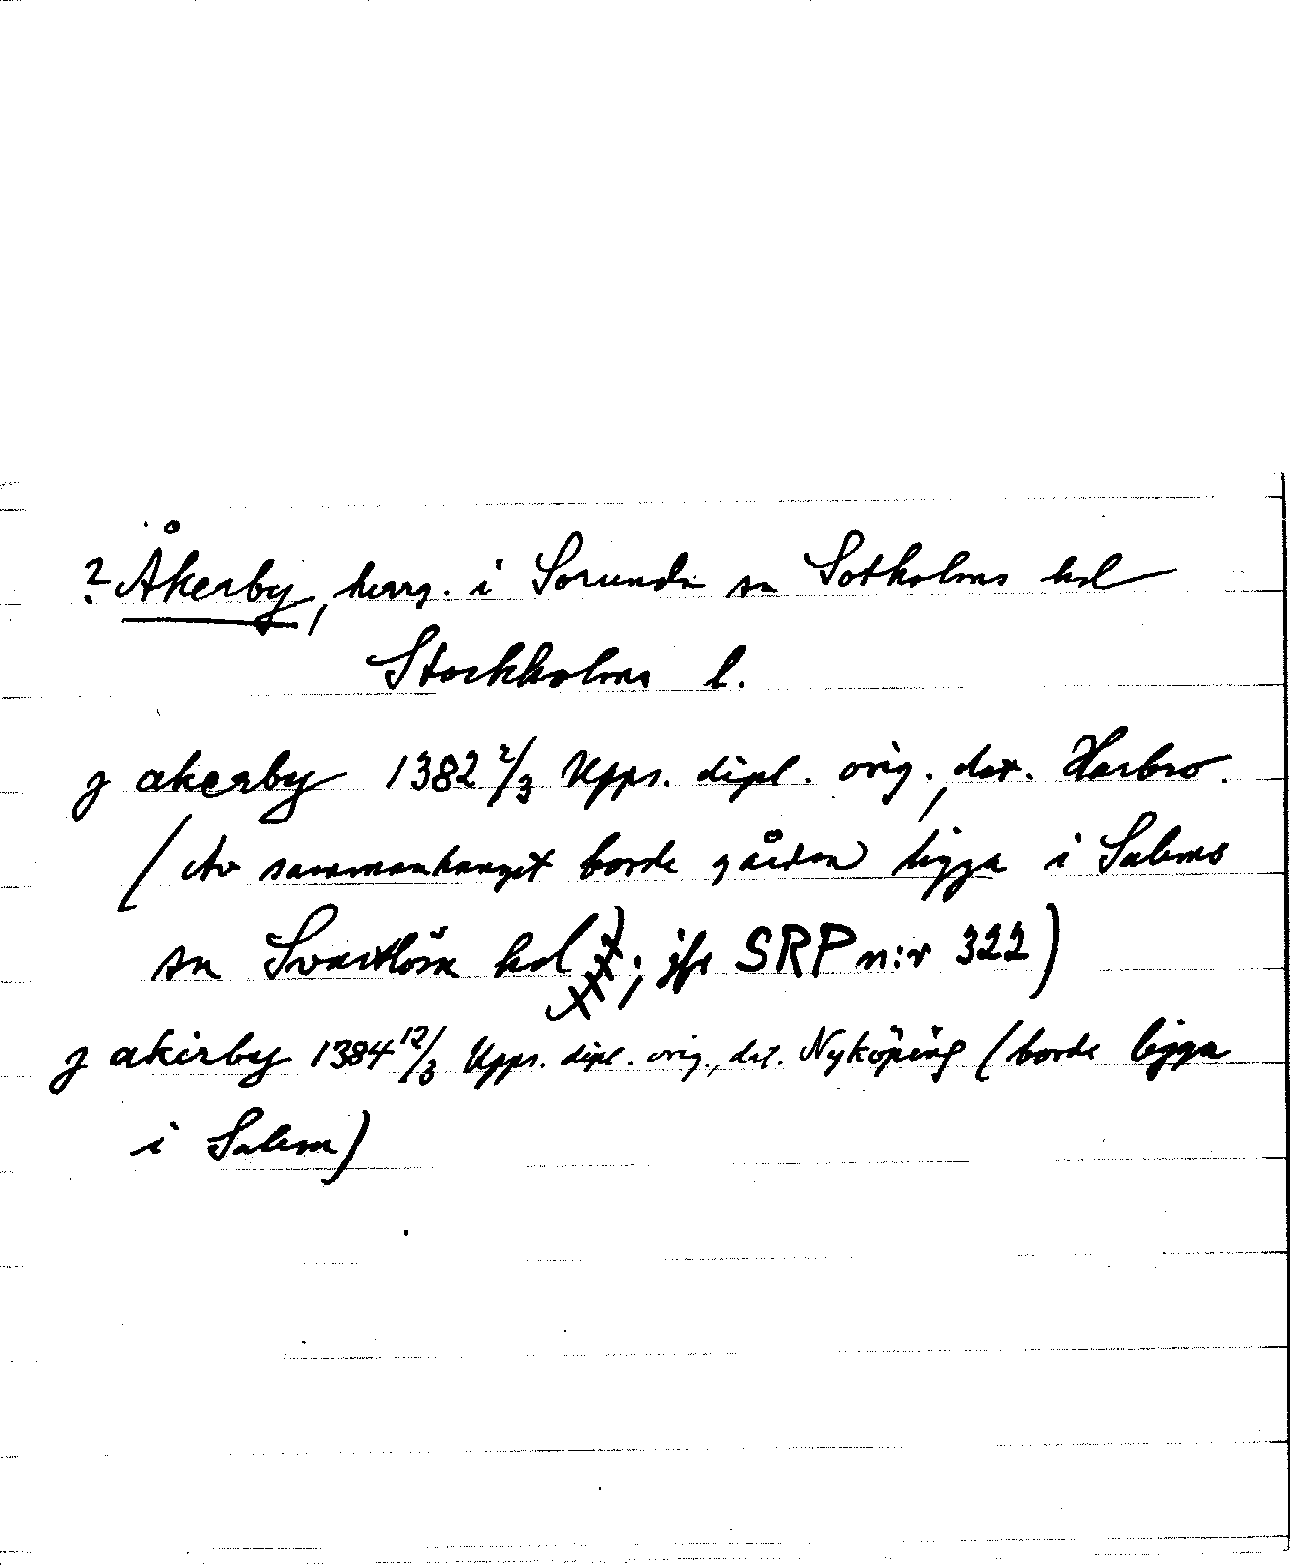 ? Åkerby, herrg. i Sorunda sn Sotholms hd
Stockholms l.
j akerby 1382 2/3 Upps. dipl. orig., dat. Harbro.
(Av sammanhanget borde gården ligga i Salems
sn Svartlösa hd; jfr SRP n:r 322)
j akirby 1384 12/3 Upps. dipl. orig., dat. Nyköping (borde ligga
i Salem)